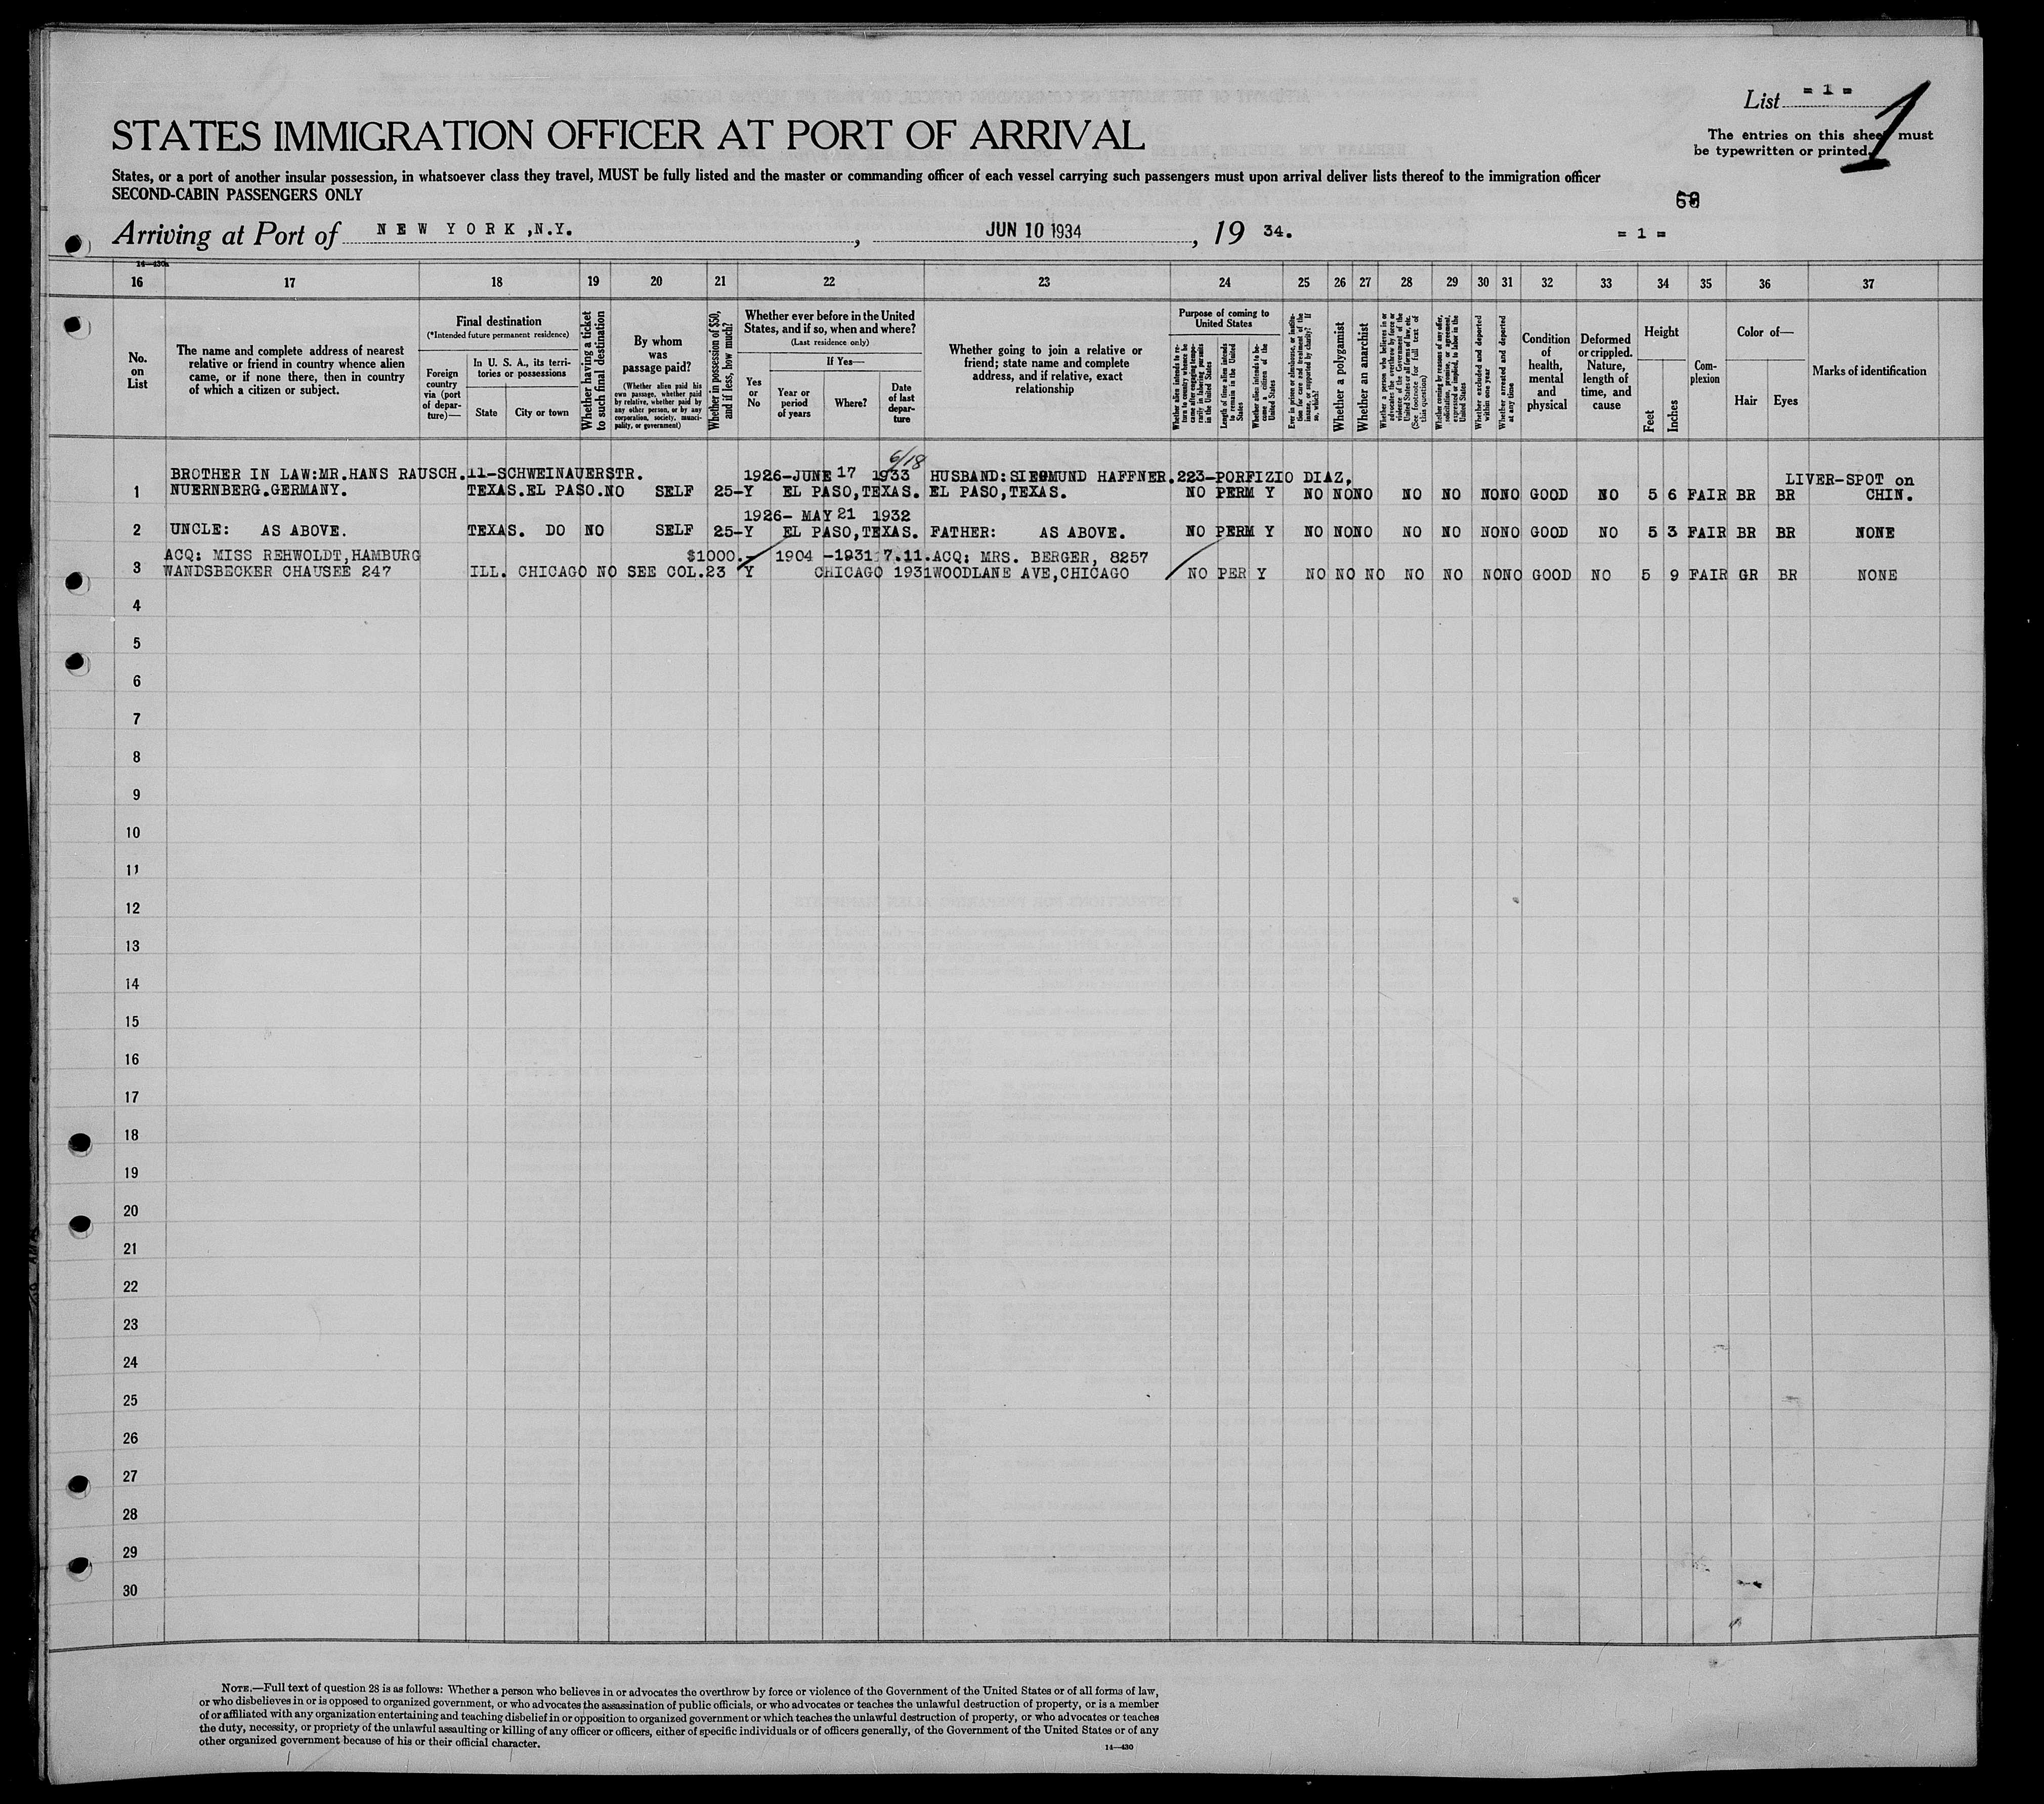 List = 1 =
1
STATES IMMIGRATION OFFICER AT PORT OF ARRIVAL
The entries on this sheet must
be typewritten or printed.
States, or a port of another insular possession, in whatsoever class they travel, MUST be fully listed and the master or commanding officer of each vessel carrying such passengers must upon arrival deliver lists thereof to the immigration officer
SECOND-CABIN PASSENGERS ONLY
Arriving at Port of NEW YORK,N.Y., JUN 10 1934, 19 34.
= 1 =
14—430a
16 17 18 19 20 21 22 23 24 25 26 27 28 29 30 31 32 33 34 35 36 37
No.
on
List
The name and complete address of nearest
relative or friend in country whence alien
came, or if none there, then in country
of which a citizen or subject.
Final destination
(*Intended future permanent residence)
Foreign
country
via (port
of depar-
ture)—
In U. S. A., its terri-
tories or possessions
State
City or town
Whether having a ticket
to such final destination
By whom
was
passage paid?
(Whether alien paid his
own passage, whether paid
by relative, whether paid by
any other person, or by any
corporation, society, munici-
pality, or government)
Whether in possession of $50,
and if less, how much?
Whether ever before in the United
States, and if so, when and where?
(Last residence only)
Yes
or
No
If Yes—
Year or
period
of years
Where?
Date
of last
depar-
ture
Whether going to join a relative or
friend; state name and complete
address, and if relative, exact
relationship
Purpose of coming to
United States
Whether alien intends to re-
turn to country whence he
came after engaging tempo-
rarily in laboring pursuits
in the United States
Length of time alien intends
to remain in the United
States
Whether alien intends to be-
come a citizen of the
United States
Ever in prison or almshouse, or institu-
tion for care and treatment of the
insane, or supported by charity? If
so, which?
Whether a polygamist
Whether an anarchist
Whether a person who believes in or
advocates the overthrow by force or
violence of the Government of the
United States or all forms of law, etc.
(See footnote for full text of
this question)
Whether coming by reasons of any offer,
solicitation, promise, or agreement,
expressed or implied, to labor in the
United States
Whether excluded and deported
within one year
Whether arrested and deported
at any time
Condition
of
health,
mental
and
physical
Deformed
or crippled.
Nature,
length of
time, and
cause
Height
Feet
Inches
Com-
plexion
Color of—
Hair
Eyes
Marks of identification
6/18
BROTHER IN LAW:MR.HANS RAUSCH.11-SCHWEINAUERSTR. 1926-JUNE 17 1933 HUSBAND:SIEGMUND HAFFNER.223-PORFIZIO DIAZ, LIVER-SPOT on
1 NUERNBERG.GERMANY. TEXAS.EL PASO.NO SELF 25-Y EL PASO,TEXAS. EL PASO,TEXAS. NO PERM Y NO NONO NO NO NONO GOOD NO 5 6 FAIR BR BR CHIN.
1926- MAY 21 1932
2 UNCLE: AS ABOVE. TEXAS. DO NO SELF 25-Y EL PASO,TEXAS. FATHER: AS ABOVE. NO PERM Y NO NONO NO NO NONO GOOD NO 5 3 FAIR BR BR NONE
ACQ: MISS REHWOLDT,HAMBURG $1000.- 1904 -1931 7.11.ACQ: MRS. BERGER, 8257
3 WANDSBECKER CHAUSEE 247 ILL. CHICAGO NO SEE COL.23 Y CHICAGO 1931WOODLANE AVE,CHICAGO NO PER Y NO NO NO NO NO NONO GOOD NO 5 9 FAIR GR BR NONE
4
5
6
7
8
9
10
11
12
13
14
15
16
17
18
19
20
21
22
23
24
25
26
27
28
29
30
NOTE.—Full text of question 28 is as follows: Whether a person who believes in or advocates the overthrow by force or violence of the Government of the United States or of all forms of law,
or who disbelieves in or is opposed to organized government, or who advocates the assassination of public officials, or who advocates or teaches the unlawful destruction of property, or is a member
of or affiliated with any organization entertaining and teaching disbelief in or opposition to organized government or which teaches the unlawful destruction of property, or who advocates or teaches
the duty, necessity, or propriety of the unlawful assaulting or killing of any officer or officers, either of specific individuals or of officers generally, of the Government of the United States or of any
other organized government because of his or their official character.
14—430